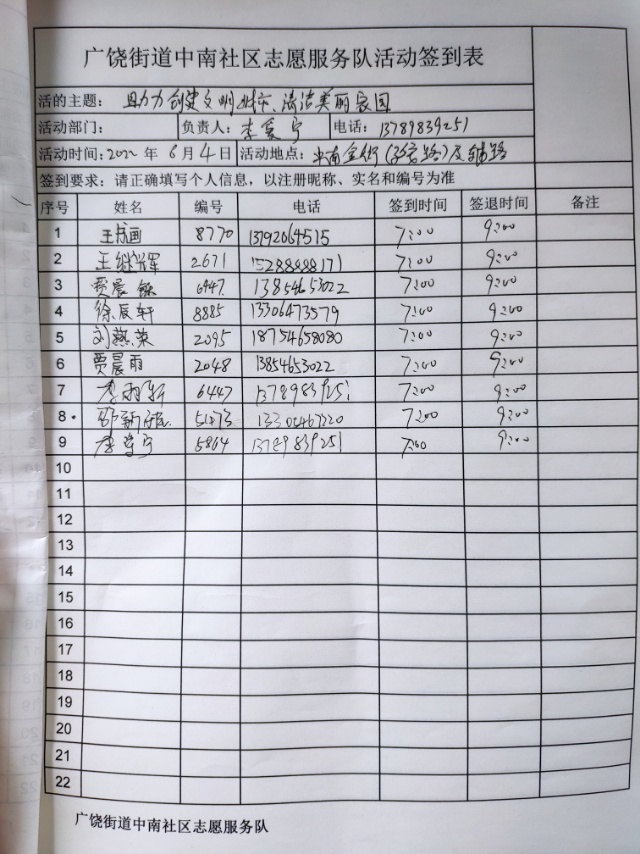 广饶街道中南社区志愿服务队活动签到表
活的主题： 助力创建文明城市、清洁美丽家园
活动部门： 负责人：李爱宁 电话：13789839251
活动时间：2022年 6月4日 活动地点：中南全街
签到要求：请正确填写个人信息，以注册昵称、实名和编号为准
序号 姓名 编号 电话 签到时间 签退时间 备注
1 王书画 8770 13792664515 7:00 9:00
2 王继辉 2671 15288888171 7:00 9:00
3 贾晨 6447 13854653022 7:00 9:00
4 徐辰轩 8885 13306473579 7:00 9:00
5 刘燕荣 2095 18754658080 7:00 9:00
6 贾晨雨 2048 13854653022 7:00 9:00
7 李雨新 6447 13789839251 7:00 9:00
8 5473 7:00 9:00
9 李爱宁 5864 13789839251 7:00 9:00
10
11
12
13
14
15
16
17
18
19
20
21
22
广饶街道中南社区志愿服务队